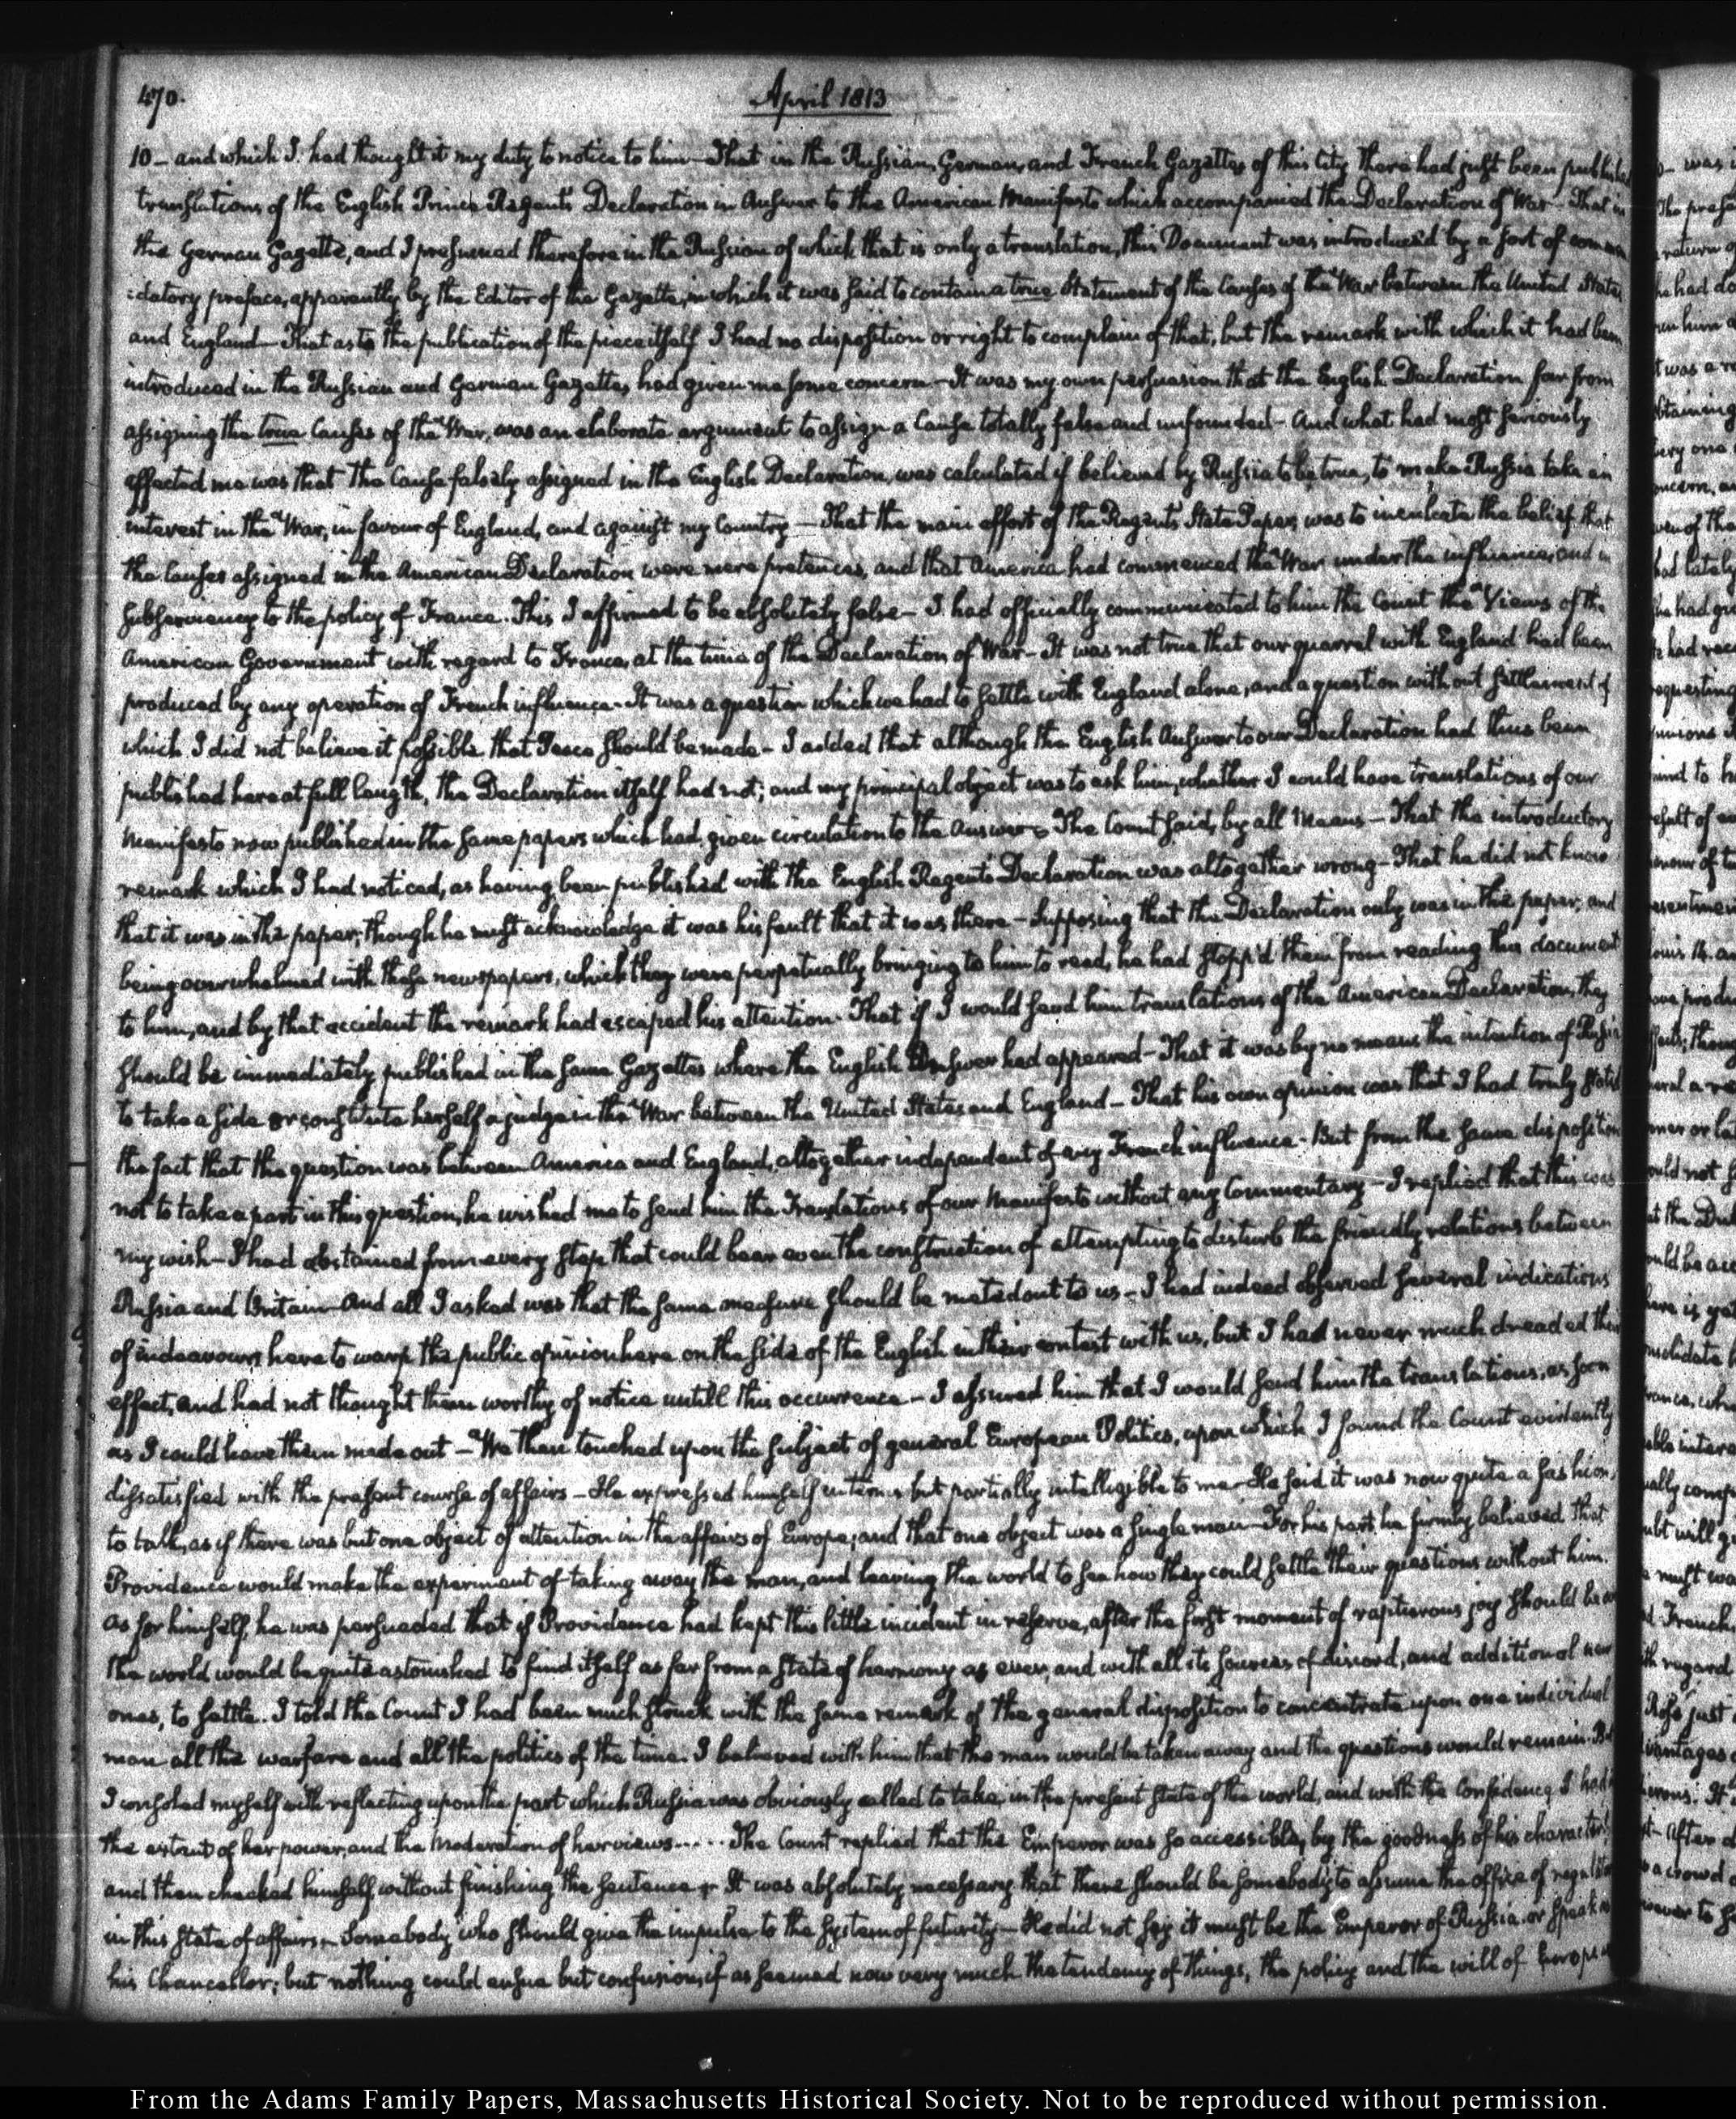 470.
April 1813
10 – and which I had thought it my duty to notice to him – That in the Russian, German, and French Gazettes of this City there had just been published
translations of the English Prince Regent's Declaration in Answer to the American Manifesto which accompanied the Declaration of War – That in
the German Gazette, and I presumed therefore in the Russian of which that is only a translation, this Document was introduced by a sort of commen
:datory preface, apparently by the Editor of the Gazette, in which it was said to contain a true Statement of the Causes of the War between the United States
and England – That as to the publication of the piece itself I had no disposition or right to complain of that, but the remark with which it had been
introduced in the Russian and German Gazettes, had given me some concern – It was my own persuasion that the English Declaration far from
assigning the true Causes of the War, was an elaborate argument to assign a Cause totally false and unfounded – And what had most seriously
affected me was that the Cause falsely assigned in the English Declaration, was calculated if believed by Russia to be true, to make Russia take an
interest in the War, in favour of England, and against my Country – That the main effort of the Regent's State Paper, was to inculcate the belief that
the Causes assigned in the American Declaration were mere pretences, and that America had commenced the War under the influence, and in
subserviency to the policy of France. This I affirmed to be absolutely false – I had officially communicated to him the Count the Views of the
American Government with regard to France, at the time of the Declaration of War – It was not true that our quarrel with England had been
produced by any operation of French influence. It was a question which we had to settle with England alone, and a question without settlement of
which I did not believe it possible that Peace should be made – I added that although the English Answer to our Declaration had thus been
published here at full length, the Declaration itself had not; and my principal object was to ask him, whether I could have translations of our
Manifesto now published in the same papers which had given circulation to the Answer – The Count said, by all Means – That the introductory
remark which I had noticed, as having been published with the English Regent's Declaration was altogether wrong – That he did not know
that it was in the paper; though he must acknowledge it was his fault that it was there – Supposing that the Declaration only was in the paper; and
being overwhelmed with these newspapers, which they were perpetually bringing to him to read, he had stopp'd them from reading this document
to him, and by that accident the remark had escaped his attention. That if I would send him translations of the American Declaration, they
should be immediately published in the same Gazettes where the English Answer had appeared – That it was by no means the intention of Russia
to take a side or constitute herself a judge in the War between the United States and England – That his own opinion was that I had truly stated
the fact that the question was between America and England, altogether independent of any French influence – But from the same disposition
not to take a part in this question, he wished me to send him the Translations of our Manifesto without any Commentary – I replied that this was
my wish – I had abstained from every step that could bear even the construction of attempting to disturb the friendly relations between
Russia and Britain – And all I asked was that the same measure should be meted out to us – I had indeed observed several indications
of indeavours here to warp the public opinion here on the side of the English in their contest with us, but I had never much dreaded their
effect, and had not thought them worthy of notice untill this occurrence – I assured him that I would send him the translations, as soon
as I could have them made out – We then touched upon the subject of general European Politics, upon which I found the Count evidently
dissatisfied with the present course of affairs – He expressed himself in terms but partially intelligible to me – He said it was now quite a fashion,
to talk, as if there was but one object of attention in the affairs of Europe; and that one object was a single man – For his part he firmly believed that
Providence would make the experiment of taking away the man, and leaving the world to see how they could settle their questions without him.
As for himself, he was persuaded that if Providence had kept this little incident in reserve, after the first moment of rapturous joy should be over
the world would be quite astonished to find itself as far from a state of harmony as ever, and with all its sources of discord, and additional new
ones, to settle. I told the Count I had been much struck with the same remark of the general disposition to concentrate upon one individual
man all the warfare and all the politics of the time. I believed with him that the man would be taken away and the questions would remain. But
I consoled myself with reflecting upon the part which Russia was obviously called to take, in the present state of the world, and with the Confidence I had in
the extent of her power, and the Moderation of her views..... The Count replied that the Emperor was so accessible, by the goodness of his character!
and then checked himself, without finishing the sentence – It was absolutely necessary that there should be somebody to assume the office of
in this state of affairs – Somebody who should give the impulse to the system of futurity – He did not say it must be the Emperor of Russia, or speak as
his Chancellor; but nothing could ensue but confusion, if as seemed now very much the tendency of things, the policy and the will of Europe
From the Adams Family Papers, Massachusetts Historical Society. Not to be reproduced without permission.